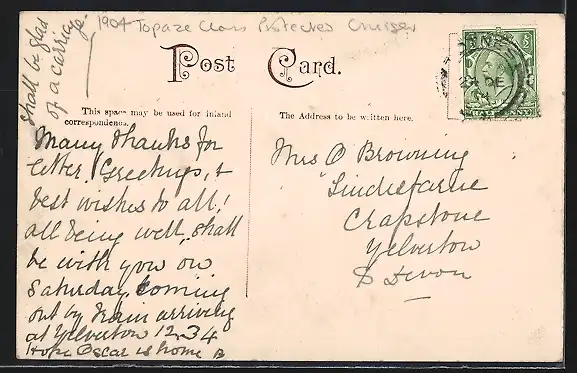 1904 Topaze Class Protected Cruiser
Shall be glad
of a carriage
Post Card.
This space may be used for inland
correspondence.
The Address to be written here.
Many thanks for
letter. Greetings, &
best wishes to all!
all being well, shall
be with you on
Saturday, coming
out by train arriving
at Yelverton 12.34
Hope Oscar is home B
Mrs O Browning
Lindisfarne
Crapstone
Yelverton
S Devon